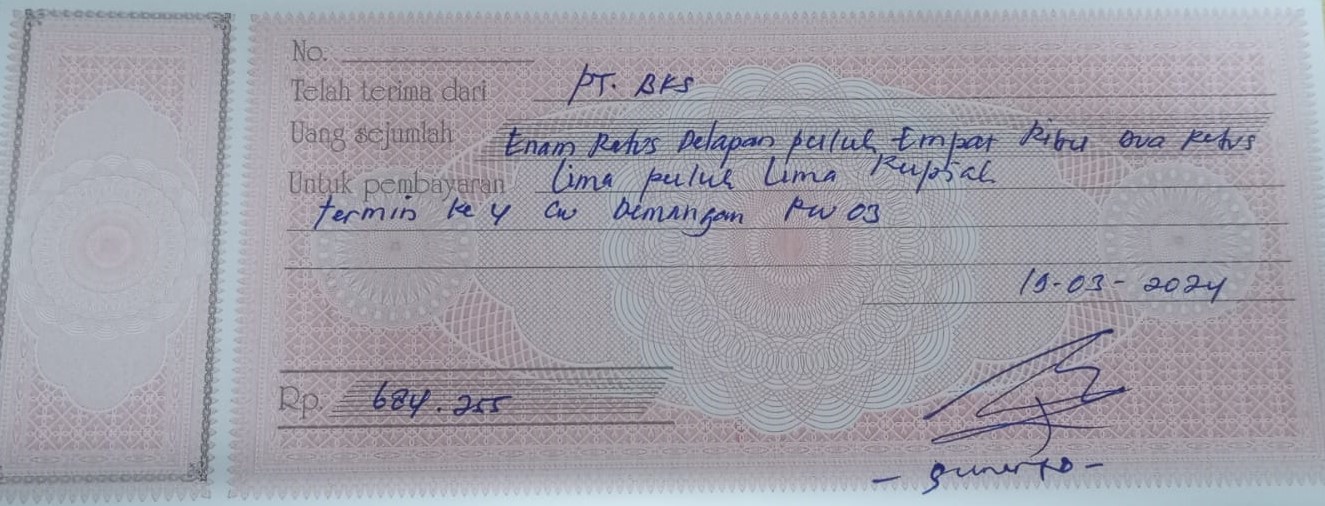 No.
Telah terima dari PT. BKS
Uang sejumlah Enam Ratus Delapan puluh Empat Ribu Dua Ratus
Lima puluh Lima Rupiah
Untuk pembayaran
termin ke 4 CW Demangan RW 03
19-03-2024
Rp. 684.255